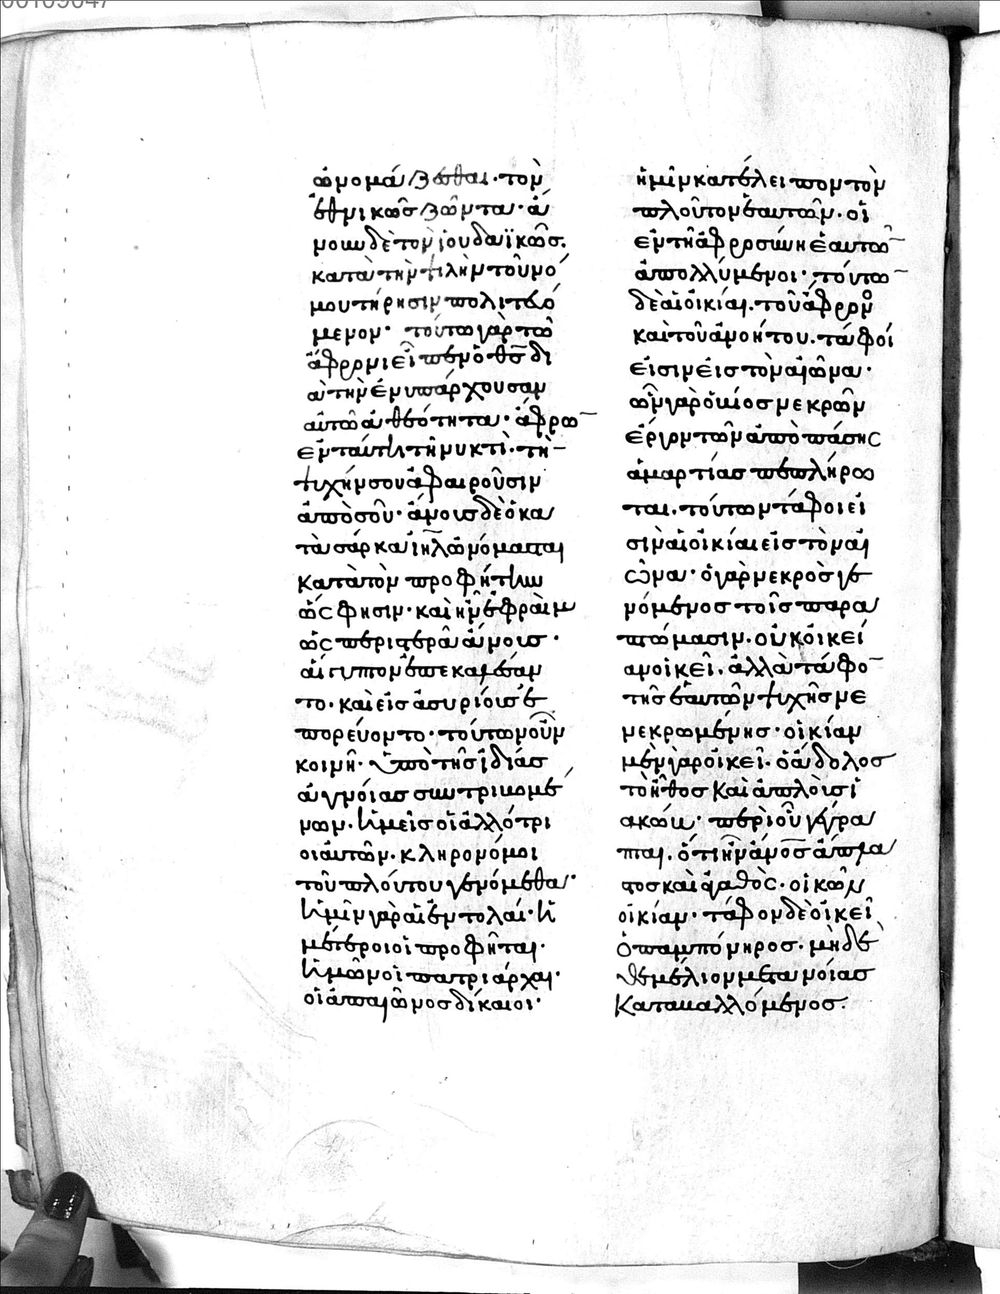 00109047
ὠνομάζεσθαι· τὸν
ἐθνικῶς ζῶντα· ἄ
νουν δὲ τὸν ἰουδαϊκῶς.
κατὰ τὴν ψιλὴν τοῦ νό
μου τήρησιν πολιτευό
μενον· τούτω γὰρ τῶ
ἄφρονι εἶπεν ὁ θς δι
ὰ τὴν ἐνυπάρχουσαν
αὐτῶ ἀθεότητα· ἄφρω
ἐν ταύτη τῆ νυκτὶ· τὴ
ψυχήν σου ἀφαιροῦσιν
ἀπὸ σοῦ· ἄνους δὲ ὁ κα
τὰ σάρκα ἰηλ ὠνόμασται
κατὰ τὸν προφήτην
ὥς φησιν· καὶ ἦν ἐφραὶμ
ὡς περιστερὰ ἄνους·
αἴγυπτον ἐπεκαλεσαν
το· καὶ εἰς ἀσυρίους ἐ
πορεύοντο· τούτων οὖν
κοινῆ· ὑπὸ τῆς ἰδιάς
ἀγνοίας συντριβομέ
νων· ἡμεῖς οἱ ἀλλότρι
οι αὐτῶν· κληρονόμοι
τοῦ πλούτου γενόμεθα·
ἡμῖν γὰρ αἱ ἐντολαί· ἡ
μέτεροι οἱ προφῆται·
ἡμῶν οἱ πατριάρχαι·
οἱ ἀπαιῶνος δίκαιοι·
ἡμῖν κατέλειπον τὸν
πλοῦτον ἑαυτῶν· οἱ
ἐν τῆ ἀφροσύνη ἑαυτῶ
ἀπολλύμενοι· τούτω
δὲ αἱ οἰκίαι· τοῦ ἄφρον
καὶ τοῦ ἀνοήτου· τάφοι
εἰσιν εἰς τὸν αἰῶνα·
ὧν γὰρ ὁ βίος νεκρῶν
ἔργων τῶν ἀπὸ πάσης
ἁμαρτίας πεπλήρω
ται· τούτων τάφοι εἰ
σὶν αἱ οἰκίαι εἰς τὸν αἰ
ῶνα· ὁ γὰρ νεκρὸς γε
νόμενος τοῖς παρα
πτώμασιν· οὐκ οἰκεί
αν οἰκεῖ· ἀλλὰ τάφο
τῆς ἑαυτῶν ψυχῆς νε
νεκρωμένης· οἰκίαν
μὲν γὰρ οἰκεῖ· ὁ ἄδολος
τὸ ἦθος καὶ ἁπλὸις ἰ
ακώβ· περὶ οὗ γέγρα
πται· ὅτι ἦν ἄνος ἄπλα
στος καὶ ἀγαθὸς· οἰκῶν
οἰκίαν· τάφον δὲ οἰκεῖ
ὁ παμπόνηρος· μηδὲ
θεμέλιον μετανοίας
καταβαλλόμενος.